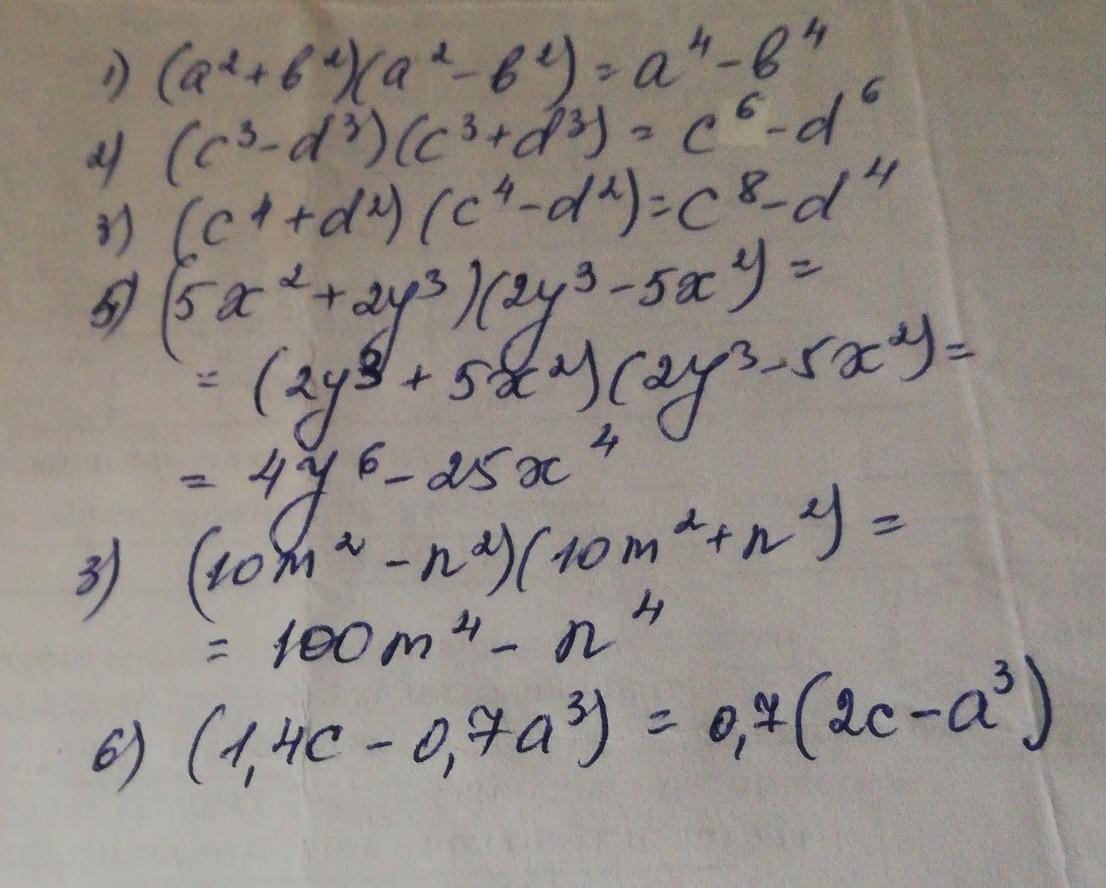 1) (a² + b²)(a² - b²) = a⁴ - b⁴
2) (c³ - d³)(c³ + d³) = c⁶ - d⁶
3) (c⁴ + d²)(c⁴ - d²) = c⁸ - d⁴
5) (5x² + 2y³)(2y³ - 5x²) =
= (2y³ + 5x²)(2y³ - 5x²) =
= 4y⁶ - 25x⁴
3) (10m² - n²)(10m² + n²) =
= 100m⁴ - n⁴
6) (1,4c - 0,7a³) = 0,7(2c - a³)